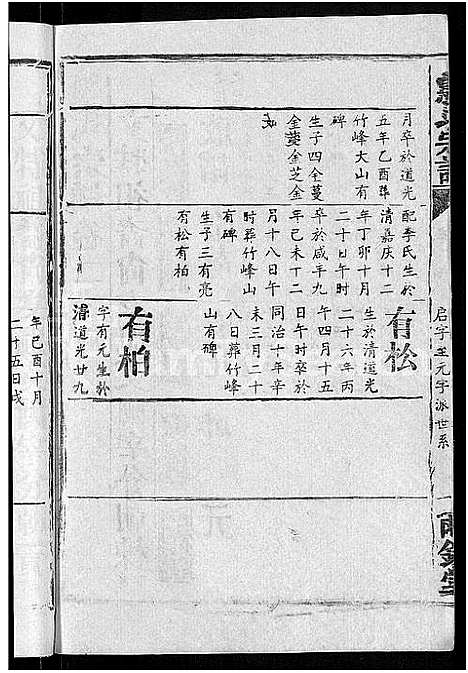 月卒於道光
五年乙酉葬
竹峰大山有
碑
生子四金蔓
金菱金芝金
配李氏生於
清嘉庆十二
年丁卯十月
二十日午时
卒於咸丰九
年己未十二
月十八日午
时葬竹峰山
有碑
生子三有亮
有松有柏
有松
生於清道光
二十六年丙
午四月十五
日午时卒於
同治十年辛
未三月二十
八日葬竹峰
山有碑
有柏
字有元生於
清道光廿九
年己酉十月
二十五日戌
启字至元字派世系